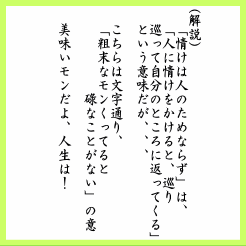 (解説)
「情けは人のためならず」は、
「人に情けをかけると、巡り
巡って自分のところに返ってくる」
という意味だが、、
こちらは文字通り、
「粗末なモンくってると
碌なことがない」の意
美味いモンだよ、人生は!